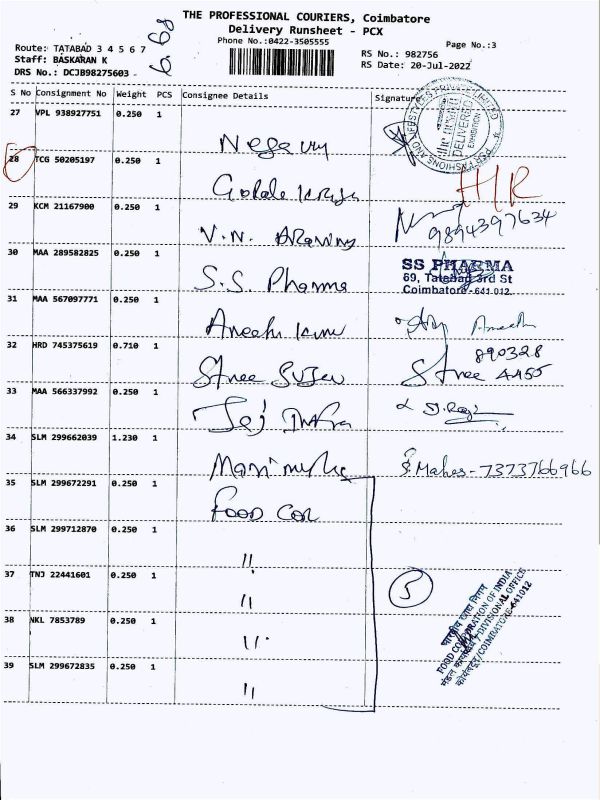 THE PROFESSIONAL COURIERS, Coimbatore
Delivery Runsheet - PCX
Phone No.:0422-3505555
Page No.:3
Route: TATABAD 3 4 5 6 7
Staff: BASKARAN K
DRS No.: DCJB98275603
RS No.: 982756
RS Date: 20-Jul-2022
S No Consignment No Weight PCS Consignee Details Signature
27 VPL 938927751 0.250 1
DELIVERED
28 TCG 50205197 0.250 1
H/R
29 KCM 21167900 0.250 1
V.N.
9894397634
30 MAA 289582825 0.250 1
S.S. Pharma
SS PHARMA
69, Tatabad 3rd St
Coimbatore-641 012.
31 MAA 567097771 0.250 1
32 HRD 745375619 0.710 1
890328
Stree
Stree 4455
33 MAA 566337992 0.250 1
Jej Infra
34 SLM 299662039 1.230 1
Mahes - 7373766966
35 SLM 299672291 0.250 1
FOOD COR
36 SLM 299712870 0.250 1
"
37 TNJ 22441601 0.250 1
"
5
38 NKL 7853789 0.250 1
"
39 SLM 299672835 0.250 1
"
भारतीय खाद्य निगम
FOOD CORPORATION OF INDIA
मंडल कार्यालय / DIVISIONAL OFFICE
कोयंबटूर/COIMBATORE-641012